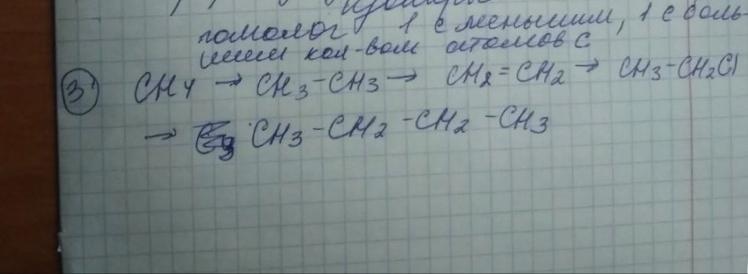 гомолог 1 с меньшим, 1 с боль-
шим кол-вом атомов С
3 CH4 → CH3-CH3 → CH2=CH2 → CH3-CH2Cl
→ CH3-CH2-CH2-CH3